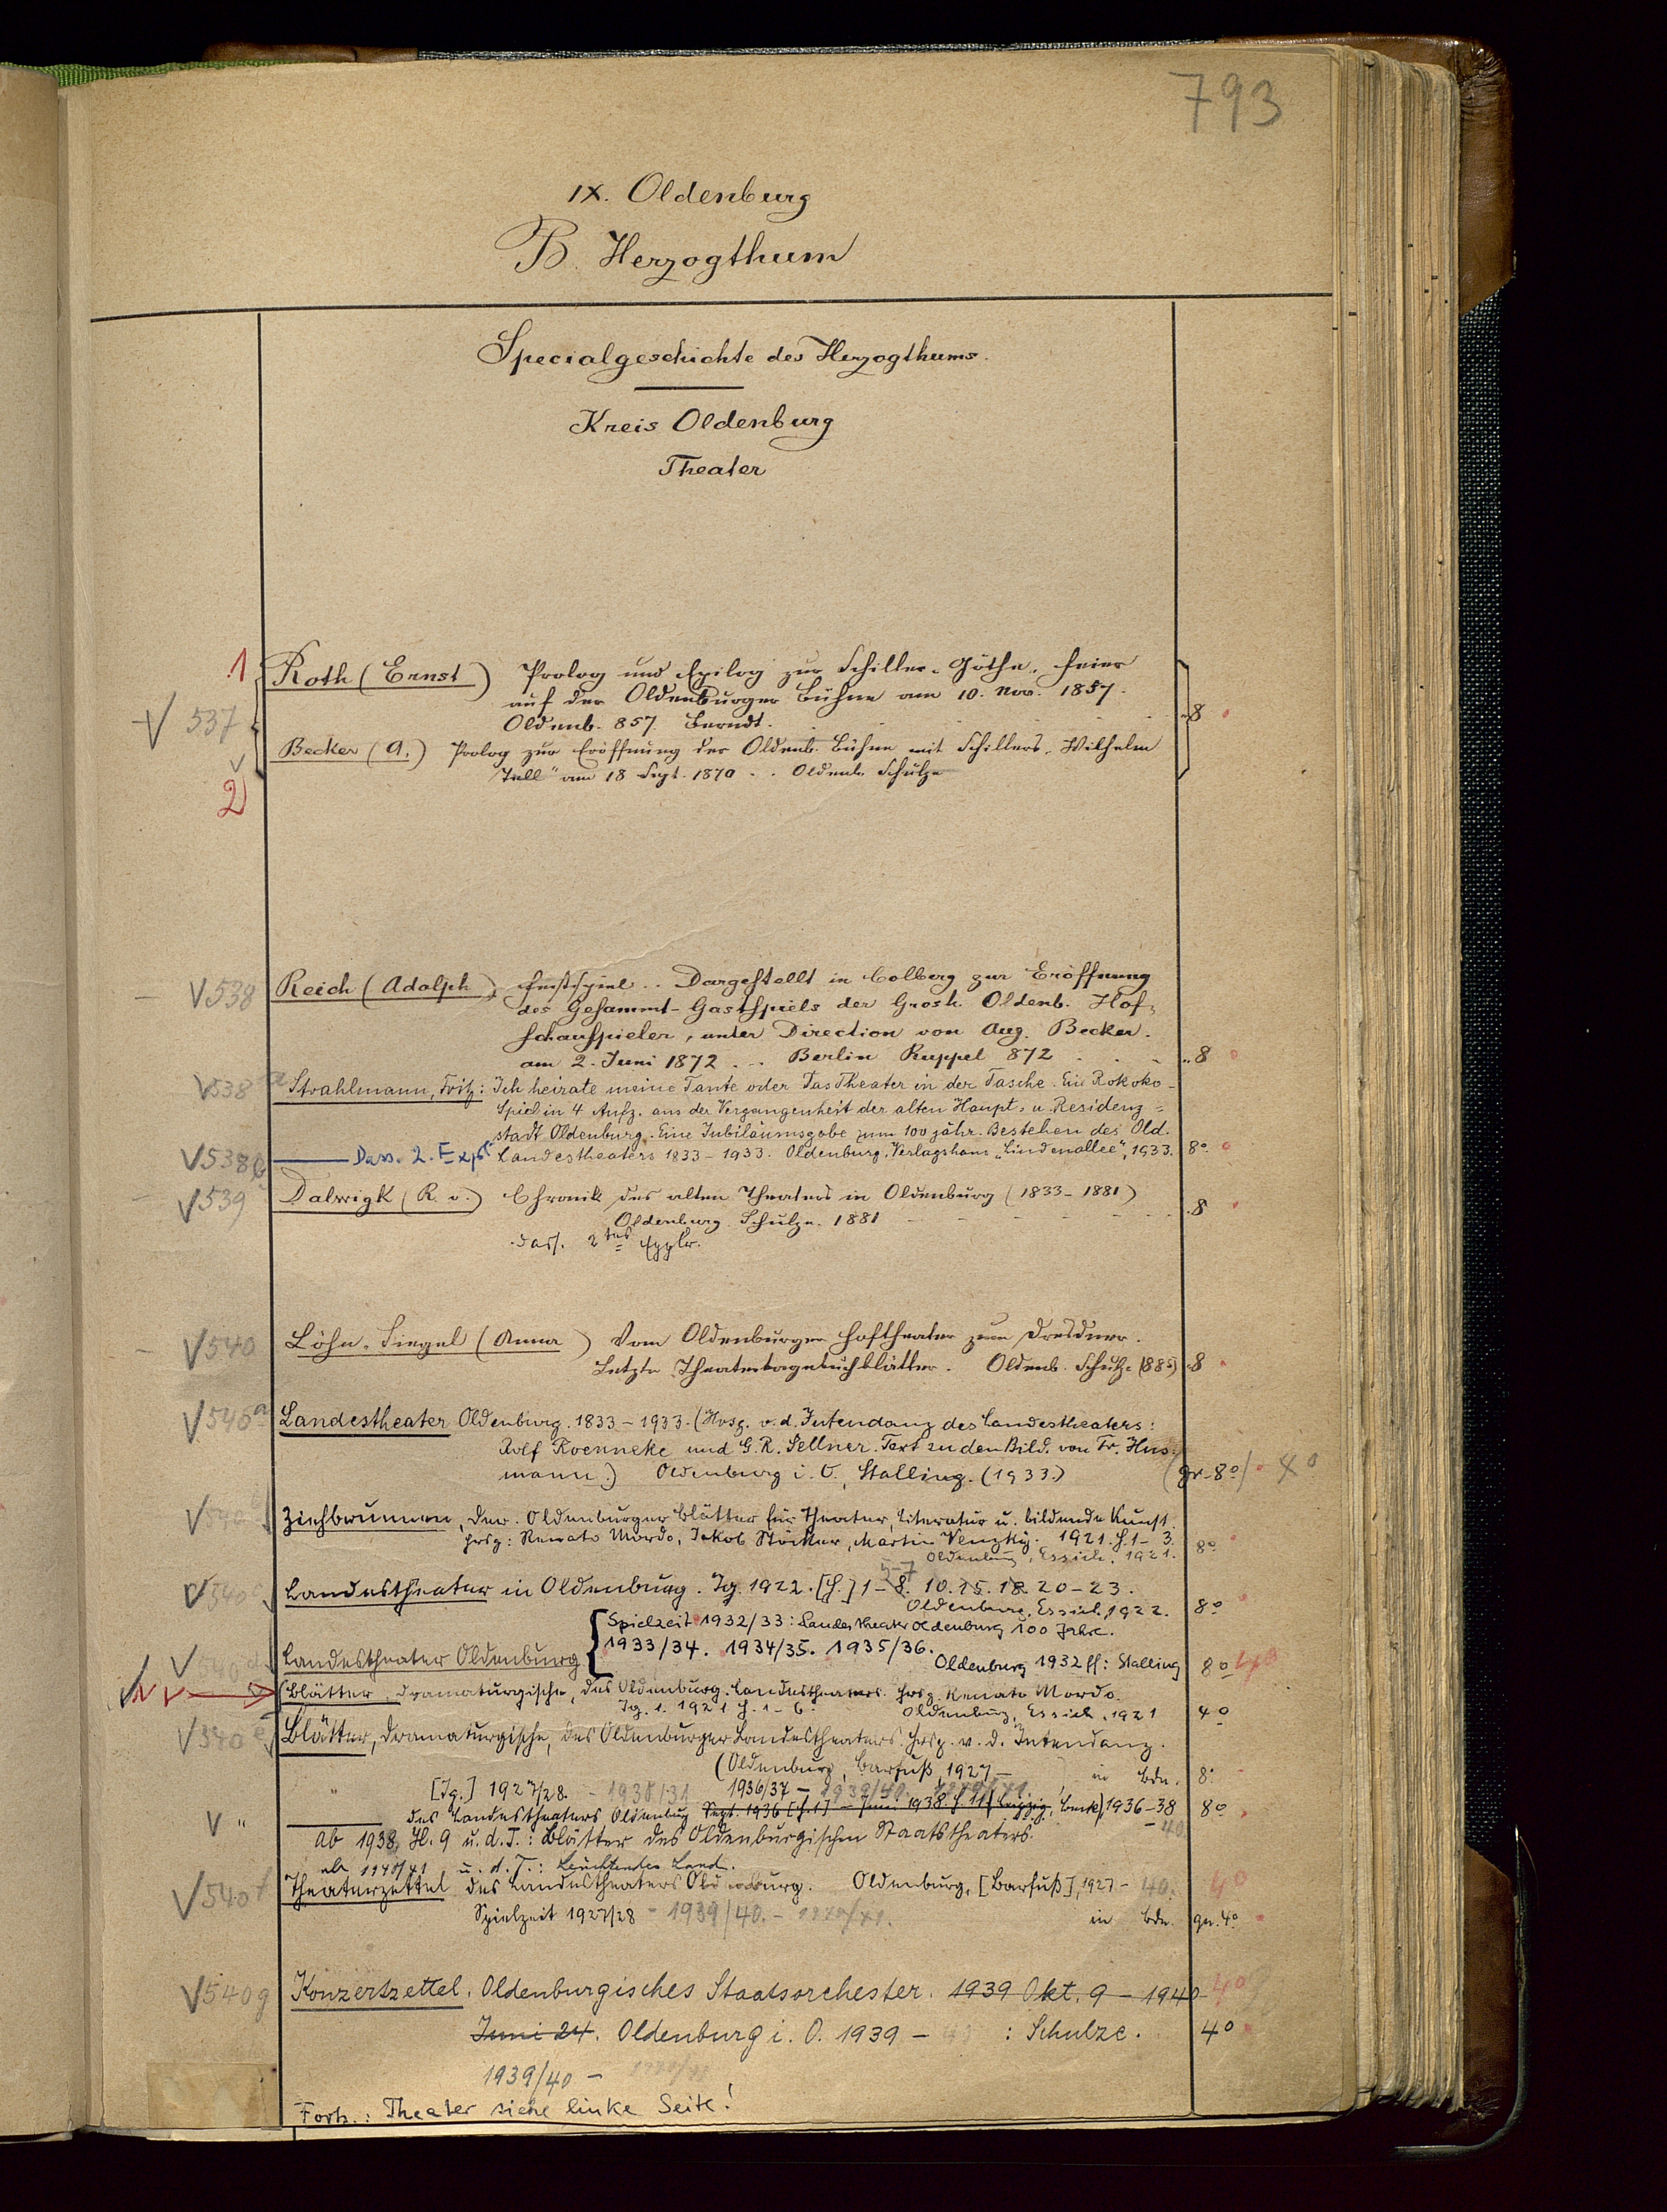 793
IX. Oldenburg
B. Herzogthum
Specialgeschichte des Herzogthums.
Kreis Oldenburg
Theater
1 Roth (Ernst) Prolog und Epilog zur Schiller-Göthe-Feier
auf der Oldenburger Bühne am 10. Nov. 1857.
V 537 Oldenb. 857. Berndt. 8
Becker (A.) Prolog zur Eröffnung der Oldenb. Bühne mit Schillers „Wilhelm
Tell" am 18 Sept. 1870 . . Oldenb. Schulze
2
V 538 Reich (Adolph) Festspiel . . Dargestellt in Colberg zur Eröffnung
des Gesammt-Gastspiels der Grosh. Oldenb. Hof-
schauspieler, unter Direction von Aug. Becker.
am 2. Juni 1872 . . . Berlin Ruppel 872 . . . 8
V 538a Strahlmann, Fritz: Ich heirate meine Tante oder Das Theater in der Tasche. Ein Rokoko-
Spiel in 4 Aufz. aus der Vergangenheit der alten Haupt- u. Residenz-
stadt Oldenburg. Eine Jubiläumsgabe zum 100 jähr. Bestehen des Old.
V 538b Dass. 2. Expl. Landestheaters 1833-1933. Oldenburg, Verlagshaus „Lindenallee", 1933. 8°
V 539 Dalwigk (R. v.) Chronik des alten Theaters in Oldenburg (1833-1881)
Oldenburg. Schulze. 1881 8
dass. 2tes Explr.
V 540 Löhn-Siegel (Anna) Vom Oldenburger Hoftheater zum Dresdner.
Letzte Theatertagebuchblätter. Oldenb. Schulze (885) 8
V 540a Landestheater Oldenburg. 1833-1933. (Hrsg. v. d. Intendanz des Landestheaters:
Rolf Roenneke und G. R. Sellner. Text zu den Bild. von Fr. Hus-
mann.) Oldenburg i. O., Stalling. (1933.) (gr. 8°) 4°
V 540b Ziehbrunnen, Der. Oldenburger Blätter für Theater, Literatur u. bildende Kunst.
Hrsg: Renato Mordo, Jakob Stöcker, Martin Venzky. 1921. H. 1-3.
Oldenburg, Essich. 1921. 8°
V 540c Landestheater in Oldenburg. Jg. 1922. [H.] 1-8. 10. 15. 18. 20-23.
5-7
Oldenburg, Essich. 1922. 8°
Spielzeit 1932/33: Landestheater Oldenburg 100 Jahre.
1933/34. 1934/35. 1935/36.
V 540d Landestheater Oldenburg Oldenburg 1932 ff: Stalling 8° 4°
Blätter, dramaturgische, des Oldenburg. Landestheaters. Hrsg. Renato Mordo.
Jg. 1. 1921 H. 1-6. Oldenburg, Essich, 1921 4°
V 540e Blätter, Dramaturgische, des Oldenburger Landestheaters. Hrsg. v. d. Intendanz.
(Oldenburg, Barfuß, 1927 - in Bdn. 8°
[Jg.] 1927/28. - 1938/31 1936/37 - 1939/40. 1940/41.
V " des Landestheaters Oldenburg Sept. 1936 [H. 1] - Juni 1938. H 11 (Leipzig, Beck), 1936-38 8°
- 40
Ab 1938, H. 9 u. d. T.: Blätter des Oldenburgischen Staatstheaters.
ab 1940/41 u. d. T.: Leuchtendes Land.
V 540f Theaterzettel des Landestheaters Oldenburg. Oldenburg, [Barfuß], 1927 - 40. 4°
Spielzeit 1927/28 - 1939/40. - 1940/41. in Bdn. gr. 4°
V 540g Konzertzettel. Oldenburgisches Staatsorchester. 1939 Okt. 9 - 1940 4°
Juni 24. Oldenburg i. O. 1939 - : Schulze. 4°
1939/40 - 1940/41
Forts.: Theater siehe linke Seite!